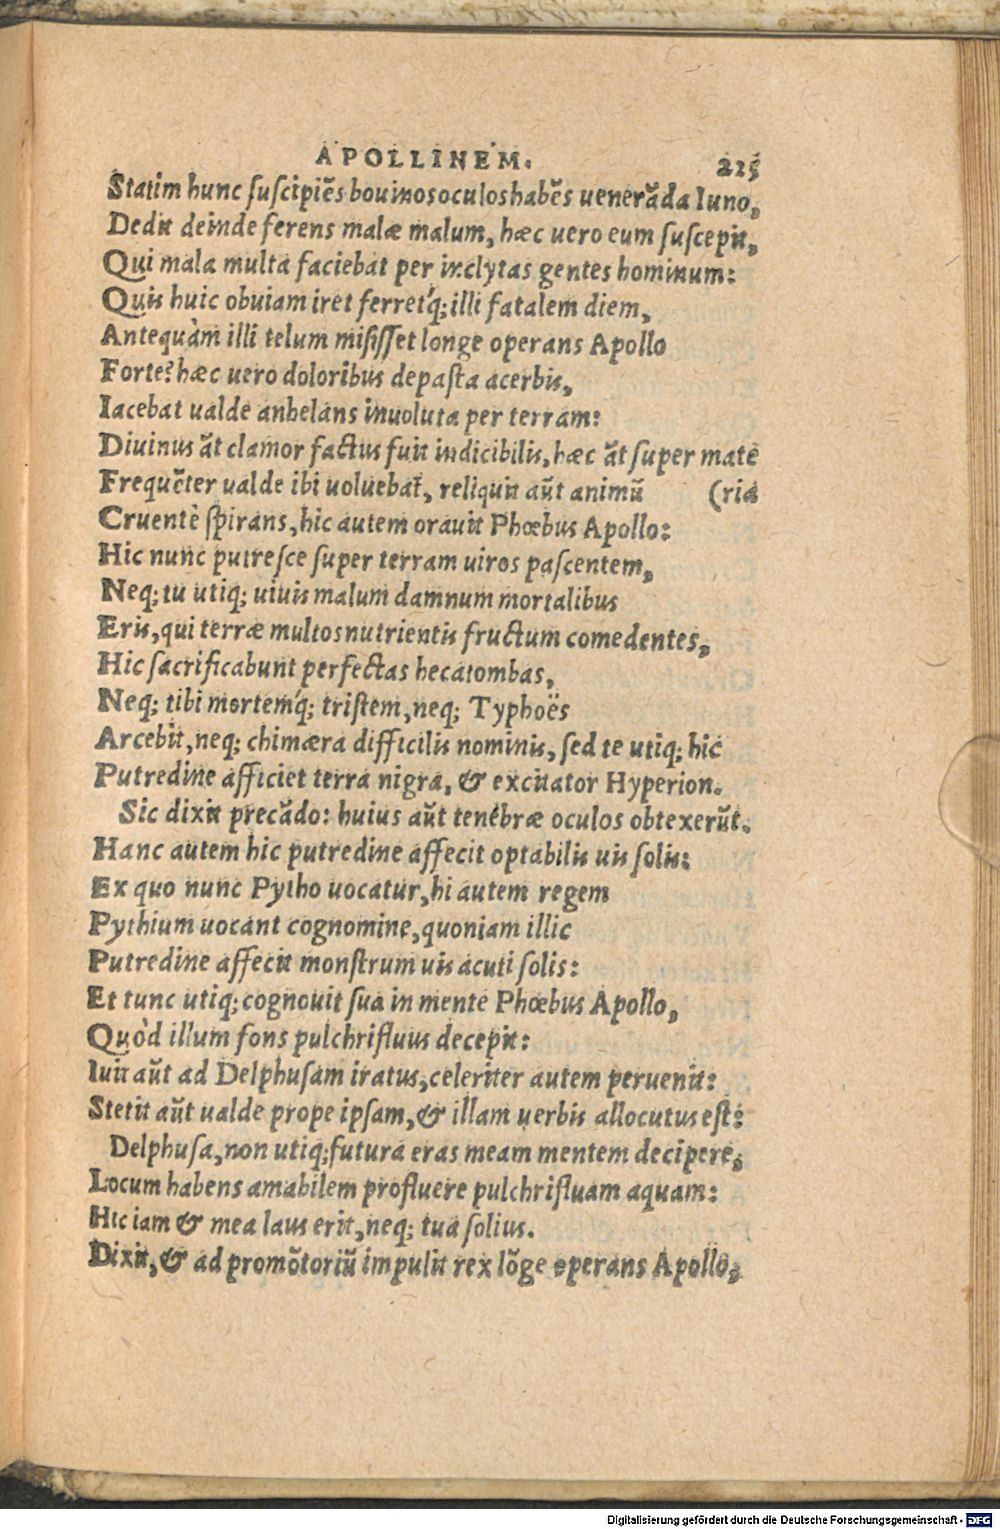 APOLLINEM. 215
Statim hunc suscipiẽs bouinos oculos habẽs uenerãda Iuno,
Dedit deinde ferens malæ malum, hæc uero eum suscepit,
Qui mala multa faciebat per inclytas gentes hominum:
Quis huic obuiam iret ferret'q; illi fatalem diem,
Antequàm illi telum misisset longe operans Apollo
Forte? hæc uero doloribus depasta acerbis,
Iacebat ualde anhelans inuoluta per terram:
Diuinus āt clamor factus fuit indicibilis, hæc āt super mate
Frequẽter ualde ibi uoluebat, reliquit aũt animũ (ria
Cruentè spirans, hic autem orauit Phœbus Apollo:
Hic nunc putresce super terram uiros pascentem,
Neq; tu utiq; uiuis malum damnum mortalibus
Eris, qui terræ multos nutrientis fructum comedentes,
Hic sacrificabunt perfectas hecatombas,
Neq; tibi mortem'q; tristem, neq; Typhoës
Arcebit, neq; chimæra difficilis nominis, sed te utiq; hic
Putredine afficiet terra nigra, & excitator Hyperion.
Sic dixit precãdo: huius aũt tenebræ oculos obtexerũt.
Hanc autem hic putredine affecit optabilis uis solis:
Ex quo nunc Pytho uocatur, hi autem regem
Pythium uocant cognomine, quoniam illic
Putredine affecit monstrum uis acuti solis:
Et tunc utiq; cognouit sua in mente Phœbus Apollo,
Quòd illum fons pulchrifluus decepit:
Iuit aũt ad Delphusam iratus, celeriter autem peruenit:
Stetit aũt ualde prope ipsam, & illam uerbis allocutus est:
Delphusa, non utiq; futura eras meam mentem decipere,
Locum habens amabilem profluere pulchrifluam aquam:
Hic iam & mea laus erit, neq; tua solius.
Dixit, & ad promõtoriũ impulit rex lõge operans Apollo,
Digitalisierung gefördert durch die Deutsche Forschungsgemeinschaft - DFG